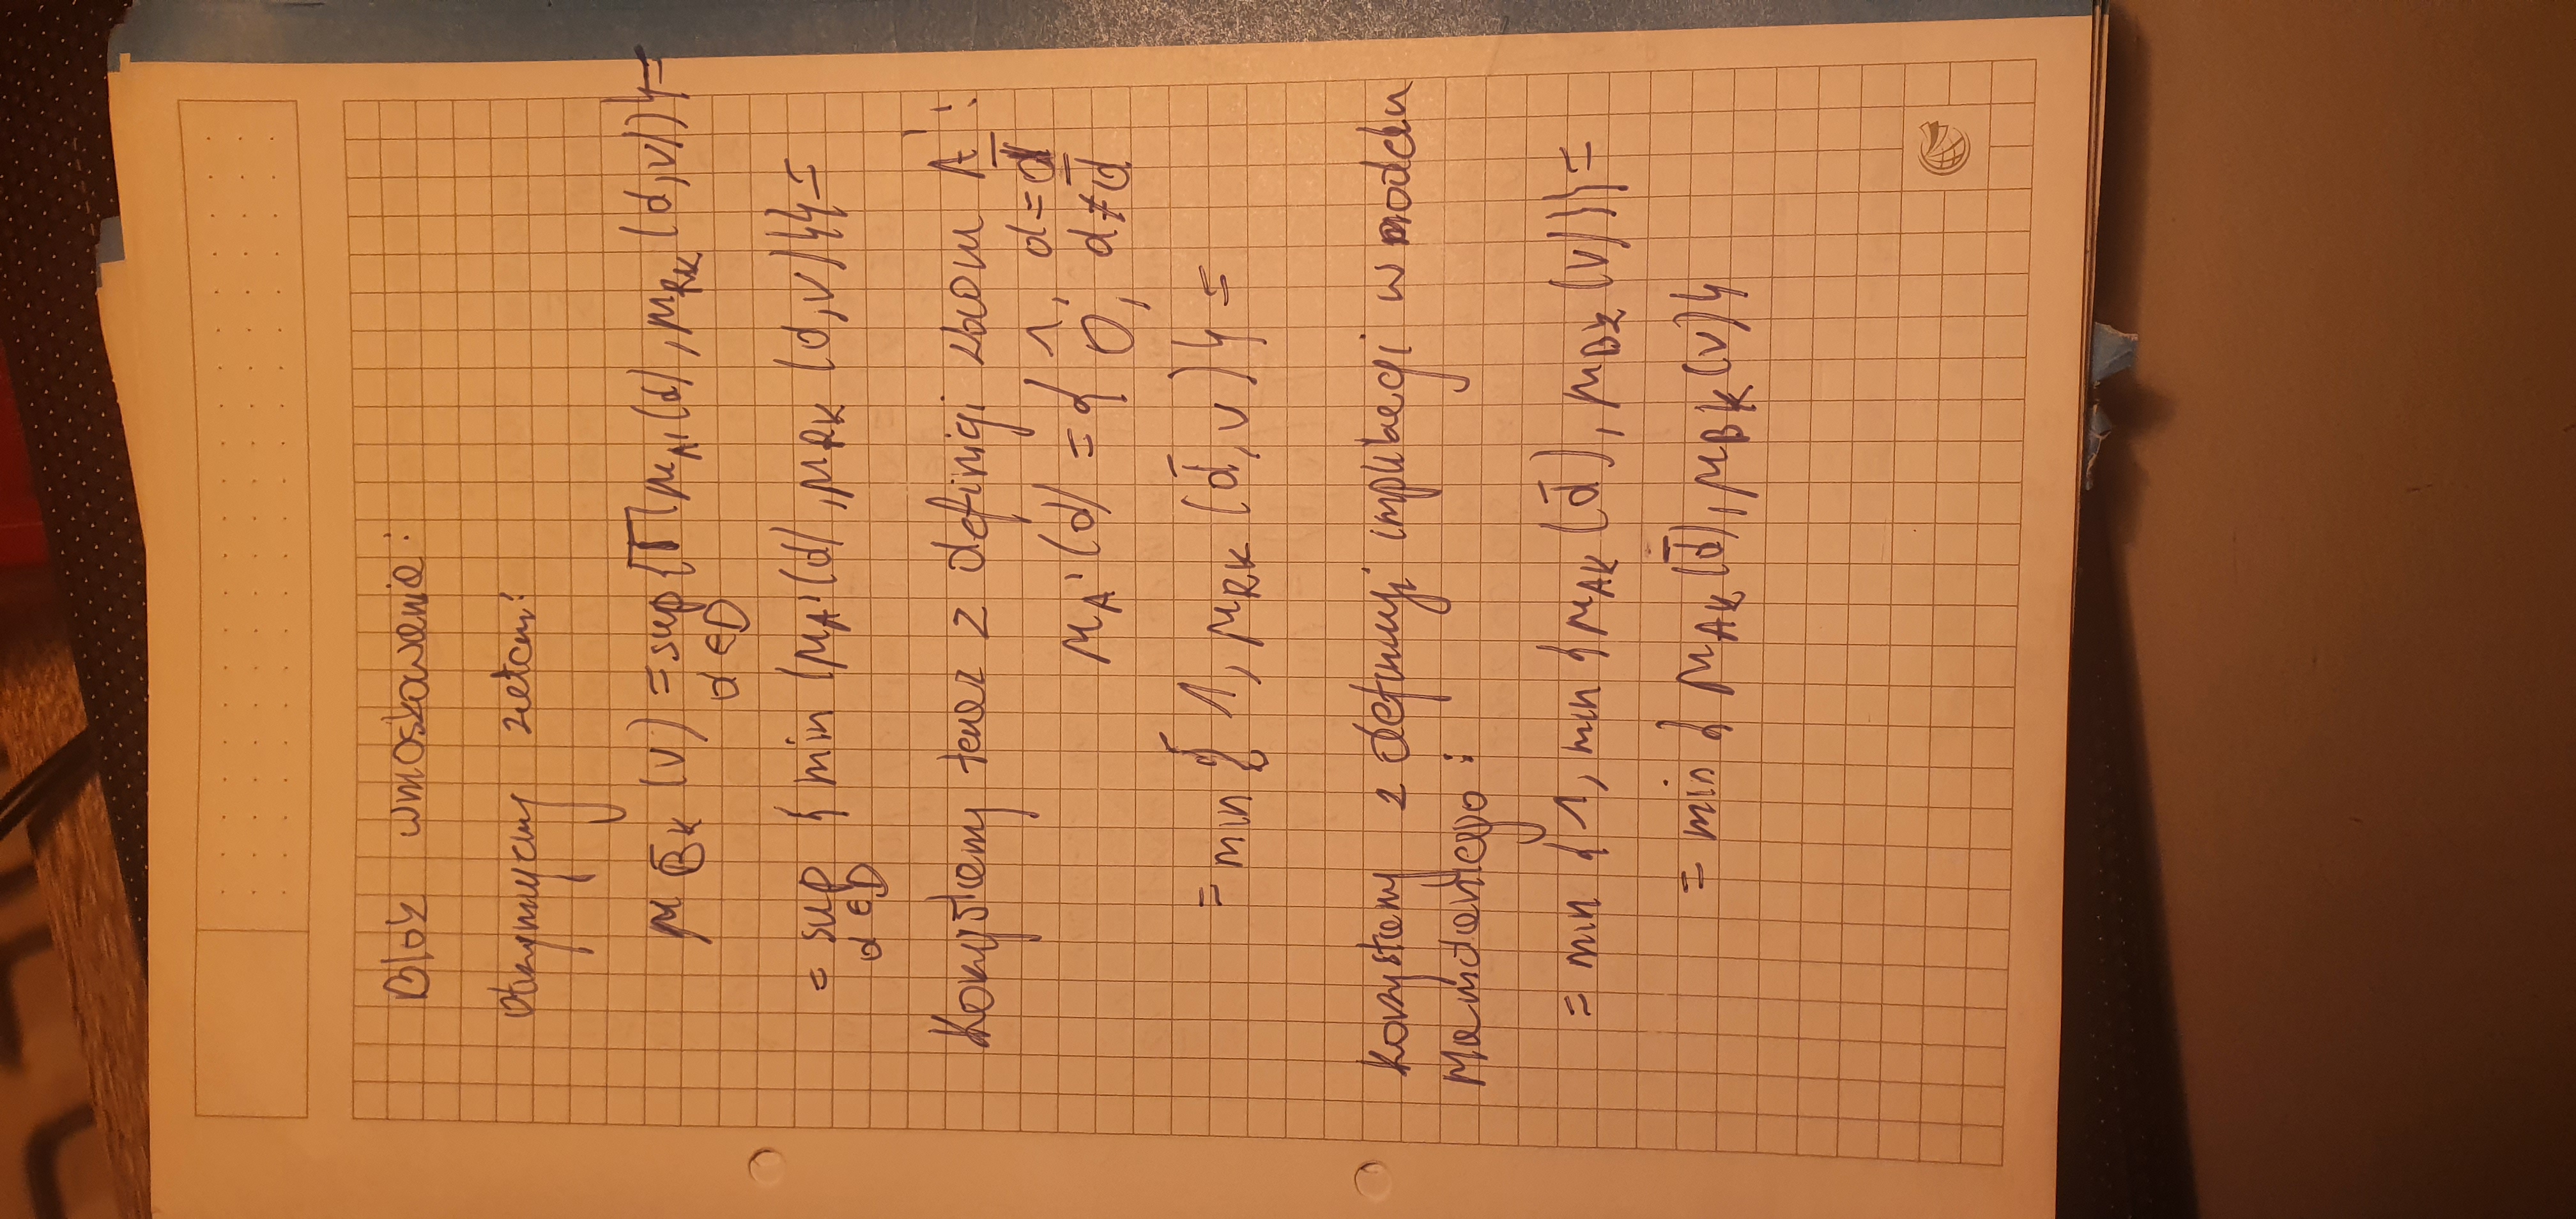 Blok wnioskowania:
Otrzymujemy zatem:
μ_B̄k (v) = sup {T(μ_A'(d), μ_Rk (d,v))} =
d ∈ D
= sup { min (μ_A'(d), μ_Rk (d,v)}} =
d ∈ D
Korzystamy teraz z definicji zbioru A':
μ_A'(d) = { 1, d = d̄
0, d ≠ d̄
= min { 1, μ_Rk (d̄, v) } =
korzystamy z definicji implikacji w modelu
Mamdaniego:
= min { 1, min { μ_Ak (d̄), μ_Bk (v)}} =
= min { μ_Ak (d̄), μ_Bk (v) }